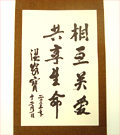 相互关爱
共享生命
温家宝
二〇〇五年
十二月一日